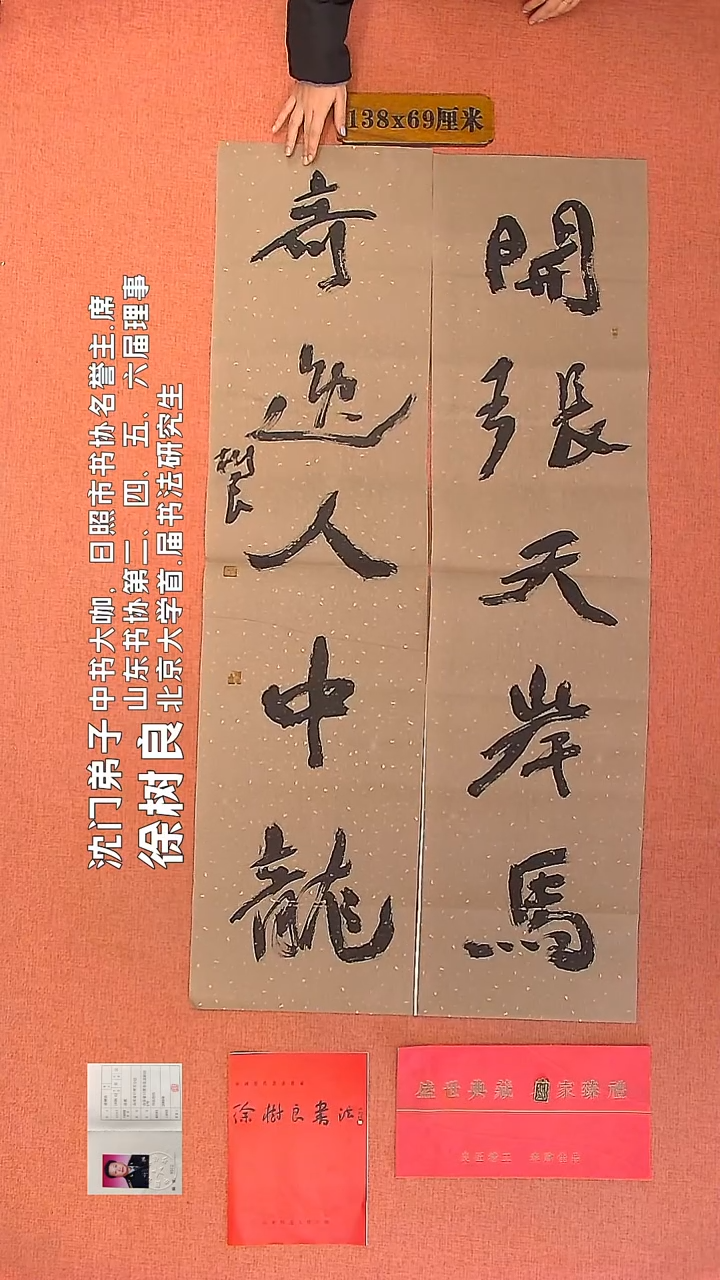 138x69厘米
開張天岸馬
奇逸人中龍
樹良
沈门弟子
徐树良
中书大咖,日照市书协名誉主.席
山东书协第二、四、五、六届理事
北京大学首.届书法研究生
徐樹良書法
盛世典藏